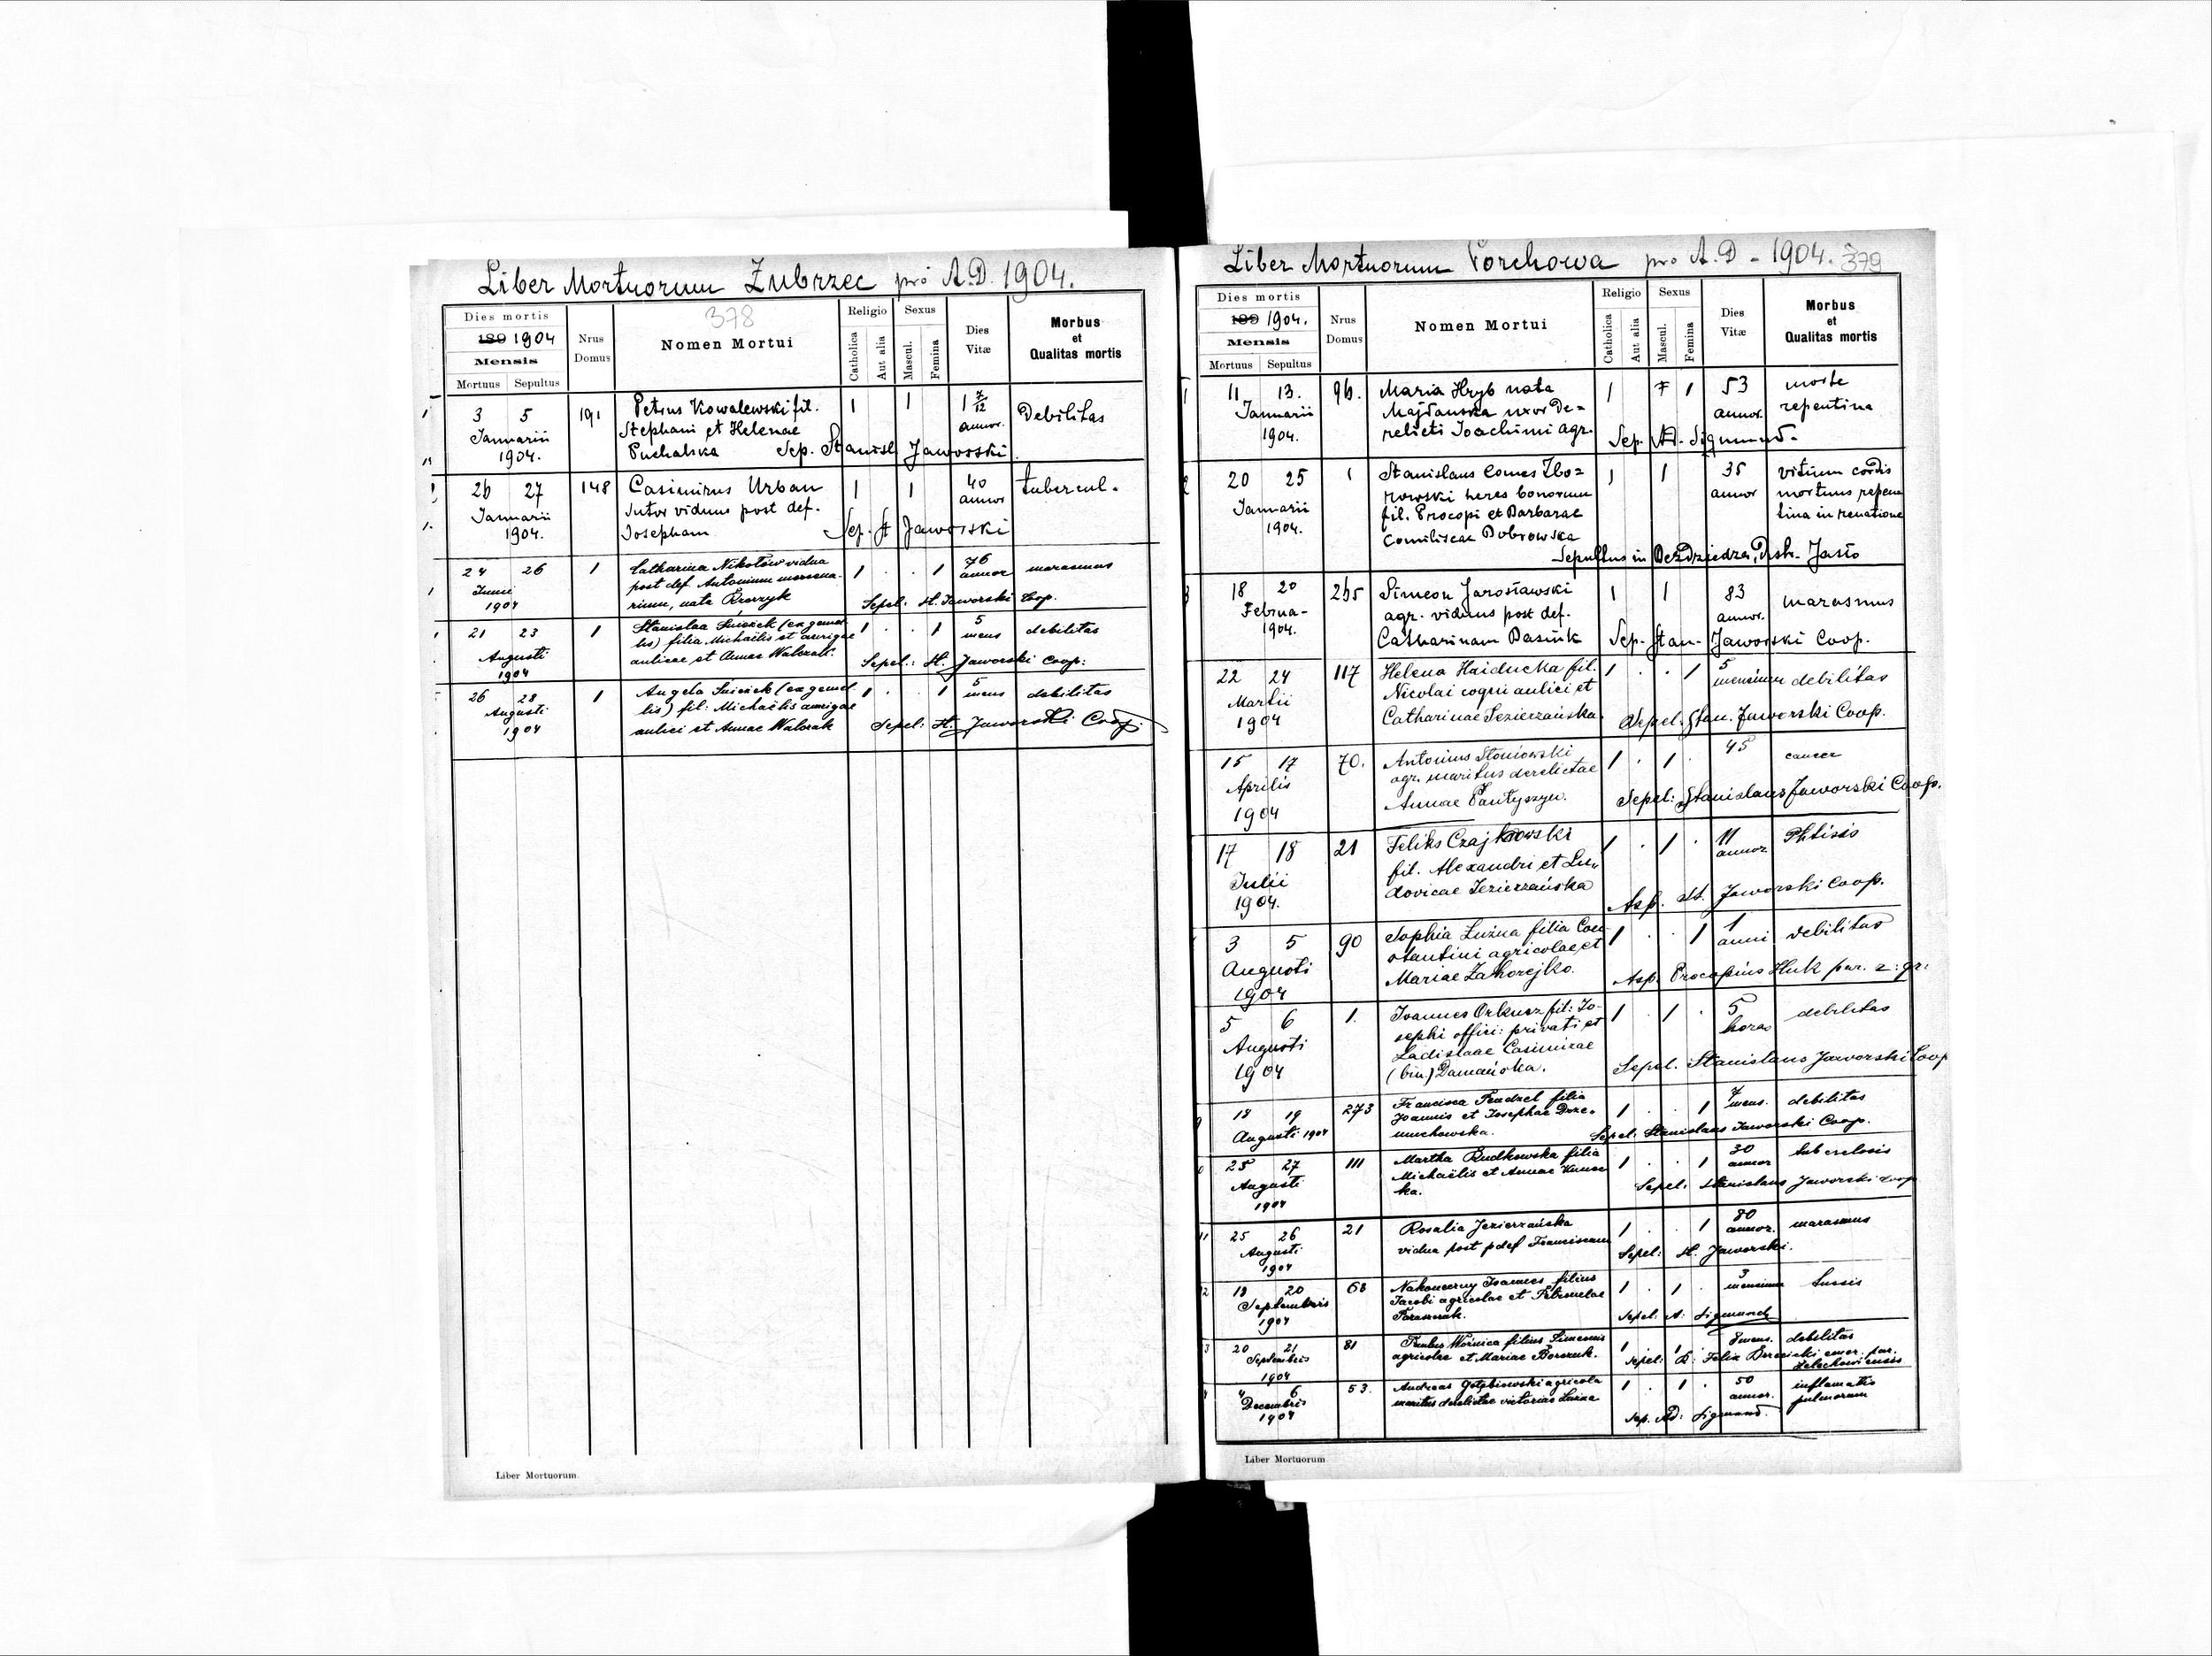 Liber Mortuorum Zubrzec pro A.D. 1904.
378
Dies mortis
189 1904
Mensis
Mortuus Sepultus
Nrus Domus
Nomen Mortui
Religio
Catholica
Aut alia
Sexus
Mascul.
Femina
Dies Vitæ
Morbus et Qualitas mortis
3 5 191 Petrus Kowalewski fil. 1 1 1 7/12 Debilitas
Januarii Stephani et Helenae annor.
1904. Puchalska Sep. Stanisl Jaworski
26 27 148 Casimirus Urban 1 1 40 tubercul.
Januarii sutor viduus post def. annor
1904. Josepham Sep. St Jaworski
24 26 1 Catharina Nikotow vidua 1 . . 1 76 marasmus
Junii post def. Antonium annor
1904 nata Sepel: St. Jaworski Coop.
21 23 1 Stanislaa (ex gemel- 1 . . 1 5 debilitas
Augusti lis) filia Michaëlis et aurigae mens
1904 aulicae et Annae Walczak. Sepel: St. Jaworski Coop:
26 28 1 Angela (ex gemel- 1 . 1 5 debilitas
Augusti lis) fil: Michaëlis aurigae mens
1904 aulici et Annae Walczak Sepel: St. Jaworski Coop.
Liber Mortuorum
Liber Mortuorum Porchowa pro A.D - 1904. 379
Dies mortis
189 1904.
Mensis
Mortuus Sepultus
Nrus Domus
Nomen Mortui
Religio
Catholica
Aut alia
Sexus
Mascul.
Femina
Dies Vitæ
Morbus et Qualitas mortis
1 11 13. 96. Maria Hryb nata 1 1 53 morte
Januarii Majdanska uxor de= annor. repentina
1904. relicti Joachimi agr. Sep. A. Sigmund.
2 20 25 1 Stanislaus Comes Zbo= 1 1 35 vitium cordis
Januarii rowski heres bonorum annor mortuus repen
1904. fil. Procopi et Barbarae tina in
Comitissae Dobrowska
Sepultus in Dezdziedza, Jasło
3 18 20 265 Simeon Jarosławski 1 1 83 marasmus
Februa- agr. viduus post def. annor.
1904. Catharinam Basiuk Sep. Stan. Jaworski Coop.
22 24 117 Helena Haiducka fil. 1 . . 1 5 debilitas
Martii Nicolai coqui aulici et mensium
1904 Catharinae Jezierzańska. Sepel. Stan. Jaworski Coop.
15 17 70. Antonius Słoniowski 1 . 1 . 45 cancer
Aprilis agr. maritus derelictae
1904 Annae Pantyszyn. Sepel: Stanislaus Jaworski Coop.
17 18 21 Feliks Czajkowski 1 . 1 . 11 Phtisis
Julii fil. Alexandri et Lu- annor
1904. dovicae Jezierzańska Asp. St. Jaworski Coop.
3 5 90 Sophia Luźna filia Con- 1 . . 1 1 debilitas
Augusti stantini agricolae et anni
1904 Mariae Zakorejko. Asp. Procopius Huk par. r: gr:
5 6 1. Joannes Orkusz fil: Jo- 1 . 1 . 5 debilitas
Augusti sephi offici: privati et horas
1904 Ladislaae Casimirae
(bin.) Damańska. Sepel. Stanislaus Jaworski Coop
18 19 273 Francisca filia 1 . . 1 7 mens. debilitas
Augusti 1904 Joannis et Josephae Drze-
muchowska. Sepel: Stanislaus Jaworski Coop.
25 27 111 Martha Rudkowska filia 1 . . 1 30 tuberculosis
Augusti Michaëlis et Annae annor
1904 Sepel: Stanislaus Jaworski Coop
11 25 26 21 Rosalia Jezierzańska 1 . . 1 80 marasmus
Augusti vidua post def Franciscum annor.
1904 Sepel: St. Jaworski.
12 18 20 68 Nakoneczny Joannes filius 1 . 1 . 3 tussis
Septembris Jacobi agricolae et mensium
1904 Sepel: A: Sigmund
13 20 21 81 Paulus Woźnica filius Simeonis 1 . 1 . 8 mens. debilitas
Septembris agricolae et Mariae Borszuk. Sepel: Felix emer. par.
1904
4 6 53. Andreas Gołębiowski agricola 1 . 1 . 50 inflamatio
Decembris maritus derelictae victoriae Luźna annor. pulmorum
1904 Sep. Ad: Sigmund.
Liber Mortuorum